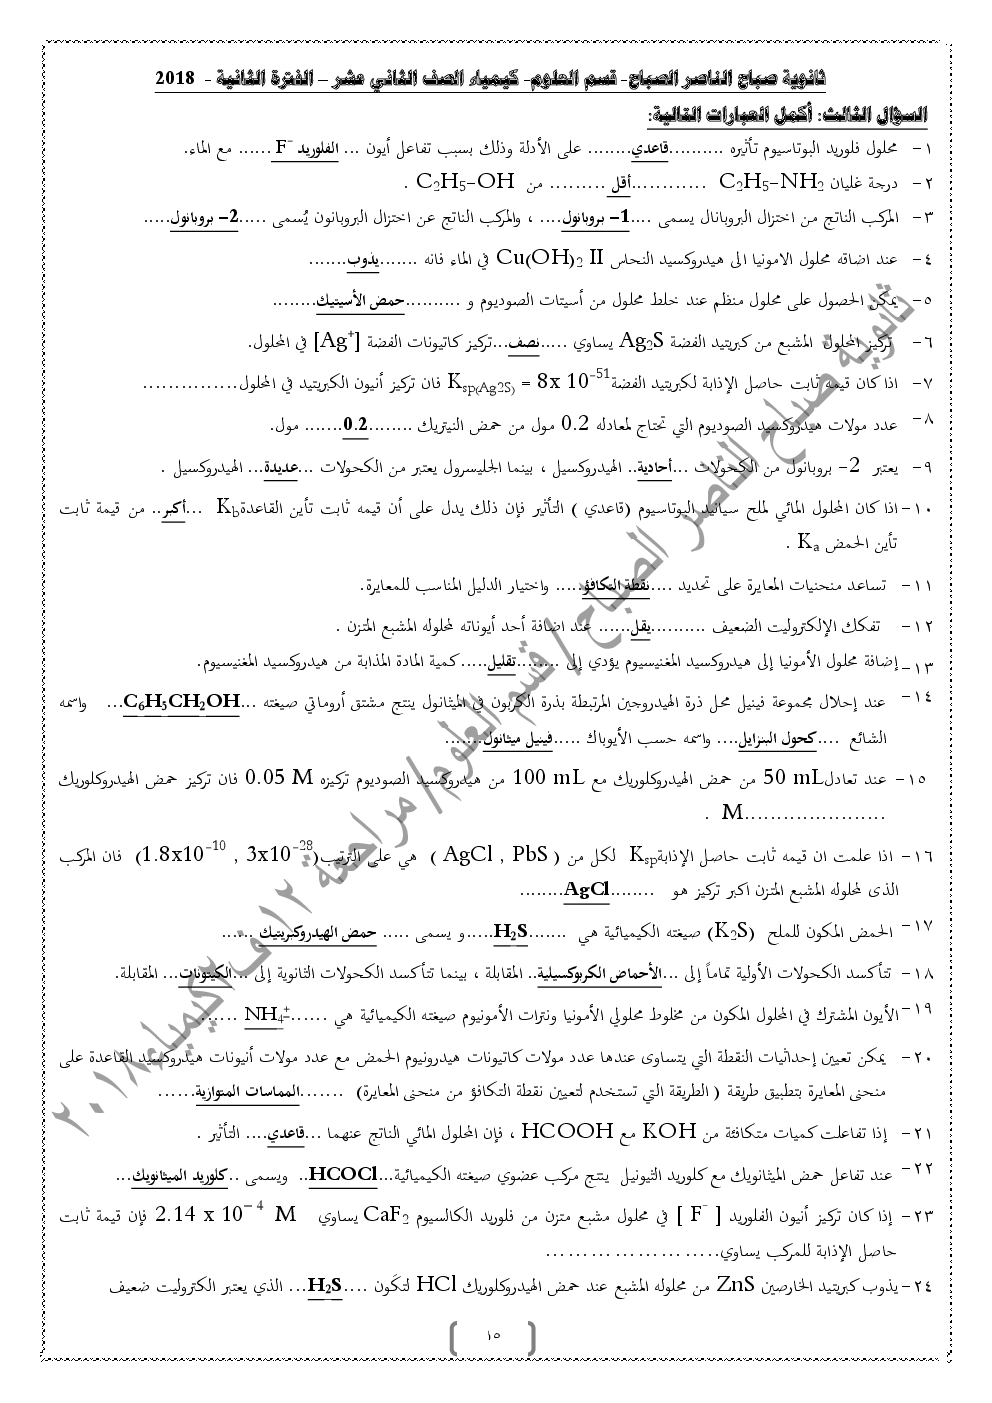 ثانوية صباح الناصر الصباح- قسم العلوم- كيمياء الصف الثاني عشر – الفترة الثانية - 2018
السؤال الثالث: أكمل العبارات التالية:
١- محلول فلوريد البوتاسيوم تأثيره ..........قاعدي........ على الأدلة وذلك بسبب تفاعل أيون ... الفلوريد F⁻ ...... مع الماء.
٢- درجة غليان C2H5-NH2 ............أقل ......... من C2H5-OH .
٣- المركب الناتج من اختزال البروبانال يسمى ....1- بروبانول.... ، والمركب الناتج عن اختزال البروبانون يُسمى .....2- بروبانول.....
٤- عند اضاقه محلول الامونيا الى هيدروكسيد النحاس Cu(OH)2 II في الماء فانه .......يذوب.......
٥- يمكن الحصول على محلول منظم عند خلط محلول من أسيتات الصوديوم و ..........حمض الأسيتيك........
٦- تركيز المحلول المشبع من كبريتيد الفضة Ag2S يساوي .....نصف...تركيز كاتيونات الفضة [Ag⁺] في المحلول.
٧- اذا كان قيمه ثابت حاصل الإذابة لكبريتيد الفضة Ksp(Ag2S) = 8x 10⁻⁵¹ فان تركيز أنيون الكبريتيد في المحلول...............
٨- عدد مولات هيدروكسيد الصوديوم التي تحتاج لمعادله 0.2 مول من حمض النيتريك ........0.2....... مول.
٩- يعتبر 2- بروبانول من الكحولات ...أحادية.. الهيدروكسيل ، بينما الجليسرول يعتبر من الكحولات ...عديدة... الهيدروكسيل .
١٠- اذا كان المحلول المائي لملح سيانيد البوتاسيوم (قاعدي ) التأثير فإن ذلك يدل على أن قيمه ثابت تأين القاعدة Kb ...أكبر.. من قيمة ثابت
تأين الحمض Ka .
١١- تساعد منحنيات المعايرة على تحديد ....نقطة التكافؤ..... واختيار الدليل المناسب للمعايرة.
١٢- تفكك الإلكتروليت الضعيف ..........يقل...... عند اضافة أحد أيوناته لمحلوله المشبع المتزن .
١٣- إضافة محلول الأمونيا إلى هيدروكسيد المغنيسيوم يؤدي إلى ........تقليل..... كمية المادة المذابة من هيدروكسيد المغنيسيوم.
١٤- عند إحلال مجموعة فينيل محل ذرة الهيدروجين المرتبطة بذرة الكربون في الميثانول ينتج مشتق أروماتي صيغته ...C6H5CH2OH... واسمه
الشائع ....كحول البنزايل.... واسمه حسب الأيوباك .....فينيل ميثانول.......
١٥- عند تعادل 50 mL من حمض الهيدروكلوريك مع 100 mL من هيدروكسيد الصوديوم تركيزه 0.05 M فان تركيز حمض الهيدروكلوريك
......................M .
١٦- اذا علمت ان قيمه ثابت حاصل الإذابة Ksp لكل من ( AgCl , PbS ) هي على الترتيب (1.8x10⁻¹⁰ , 3x10⁻²⁸) فان المركب
الذى لمحلوله المشبع المتزن اكبر تركيز هو ........AgCl........
١٧- الحمض المكون للملح (K2S) صيغته الكيميائية هي .......H2S.....و يسمى ..... حمض الهيدروكبريتيك ......
١٨- تتأكسد الكحولات الأولية تماماً إلى ...الأحماض الكربوكسيلية.. المقابلة ، بينما تتأكسد الكحولات الثانوية إلى ...الكيتونات... المقابلة.
١٩- الأيون المشترك في المحلول المكون من مخلوط محلولي الأمونيا ونترات الأمونيوم صيغته الكيميائية هي ......NH4⁺ ......
٢٠- يمكن تعيين إحداثيات النقطة التي يتساوى عندها عدد مولات كاتيونات هيدرونيوم الحمض مع عدد مولات أنيونات هيدروكسيد القاعدة على
منحنى المعايرة بتطبيق طريقة ( الطريقة التي تستخدم لتعيين نقطة التكافؤ من منحنى المعايرة) .......المماسات المتوازية......
٢١- إذا تفاعلت كميات متكافئة من KOH مع HCOOH ، فإن المحلول المائي الناتج عنهما ...قاعدي.... التأثير .
٢٢- عند تفاعل حمض الميثانويك مع كلوريد الثيونيل ينتج مركب عضوي صيغته الكيميائية...HCOCl.. ويسمى ..كلوريد الميثانويك...
٢٣- إذا كان تركيز أنيون الفلوريد [ F⁻ ] في محلول مشبع متزن من فلوريد الكالسيوم CaF2 يساوي 2.14 x 10⁻⁴ M فإن قيمة ثابت
حاصل الإذابة للمركب يساوي.......................
٢٤- يذوب كبريتيد الخارصين ZnS من محلوله المشبع عند حمض الهيدروكلوريك HCl لتكَون ....H2S... الذي يعتبر الكتروليت ضعيف
١٥
ثانوية صباح الناصر الصباح / قسم العلوم / مراجعة ١٢ ف٢ كيمياء ٢٠١٨